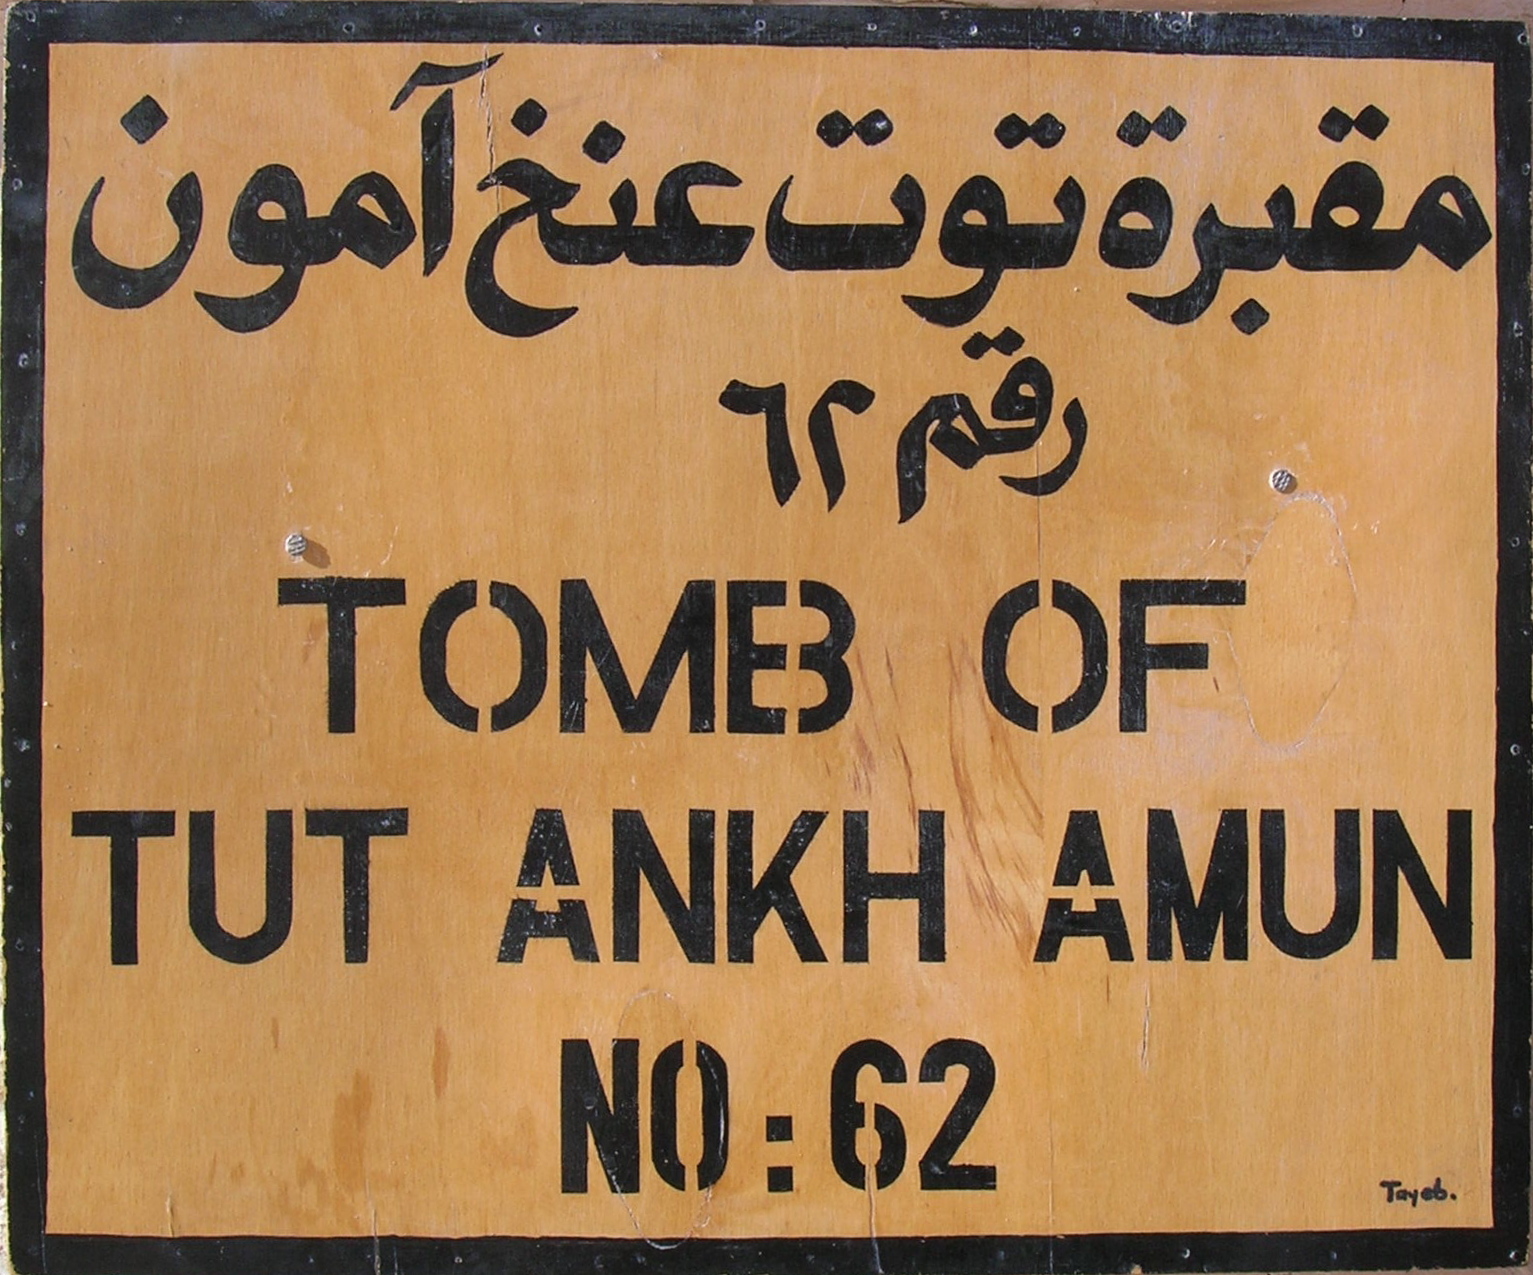 مقبرة توت عنخ آمون
رقم ٦٢
TOMB OF
TUT ANKH AMUN
NO : 62
Tayeb.